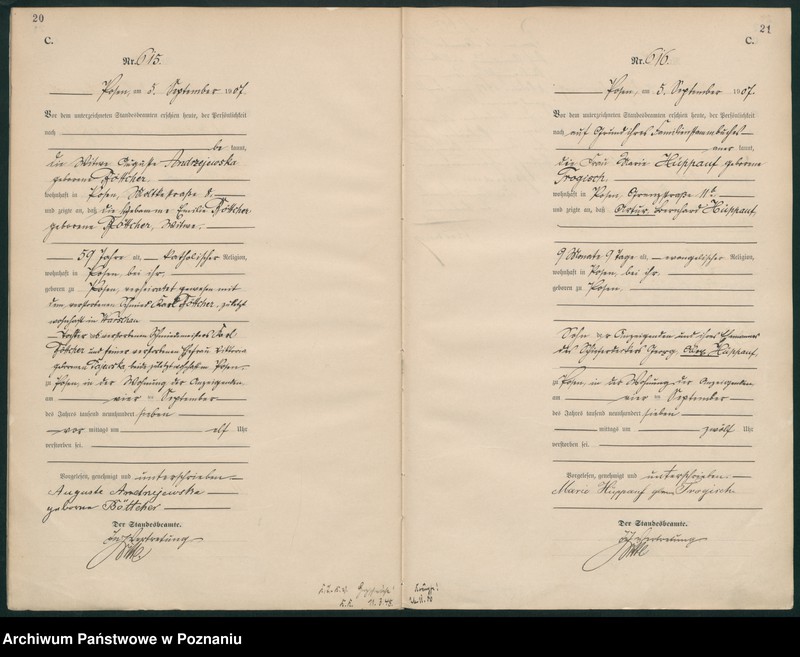 20
C.
Nr. 615.
Posen, am 5. September 1907.
Vor dem unterzeichneten Standesbeamten erschien heute, der Persönlichkeit
nach
be kannt,
die Witwe Auguste Andrzejewska
geborene Böttcher,
wohnhaft in Posen, Moltkestraße 8,
und zeigte an, daß die Hebamme Emilie Böttcher
geborene Böttcher, Witwe,
59 Jahre alt, katholischer Religion,
wohnhaft in Posen, bei ihr,
geboren zu Posen, verheiratet gewesen mit
dem verstorbenen Schmied Karl Böttcher, zuletzt
wohnhaft in Warschau
Tochter des verstorbenen Schmiedemeisters Karl
Böttcher und seiner verstorbenen Ehefrau Viktoria
geborenen beide zuletzt wohnhaft in Posen
zu Posen, in der Wohnung der Anzeigenden,
am vier ten September
des Jahres tausend neunhundert sieben
vor mittags um elf Uhr
verstorben sei.
Vorgelesen, genehmigt und unterschrieben
Auguste Andrzejewska
geborene Böttcher
Der Standesbeamte.
In Vertretung
K.K. 11.7.48
21
C.
Nr. 616.
Posen, am 5. September 1907.
Vor dem unterzeichneten Standesbeamten erschien heute, der Persönlichkeit
nach auf Grund ihres Familienstammbuches
aner kannt,
die Frau Marie Hüppauf geborene
Trogisch
wohnhaft in Posen, Grenzstraße 11a,
und zeigte an, daß Artur Bernhard Hüppauf,
9 Monate 9 Tage alt, evangelischer Religion,
wohnhaft in Posen, bei ihr,
geboren zu Posen,
Sohn der Anzeigenden und ihres Ehemannes
des Schieferdeckers Georg Hüppauf,
zu Posen, in der Wohnung der Anzeigenden
am vier ten September
des Jahres tausend neunhundert sieben
mittags um zwölf Uhr
verstorben sei.
Vorgelesen, genehmigt und unterschrieben.
Marie Hüppauf geborene Trogisch
Der Standesbeamte.
In Vertretung
Archiwum Państwowe w Poznaniu